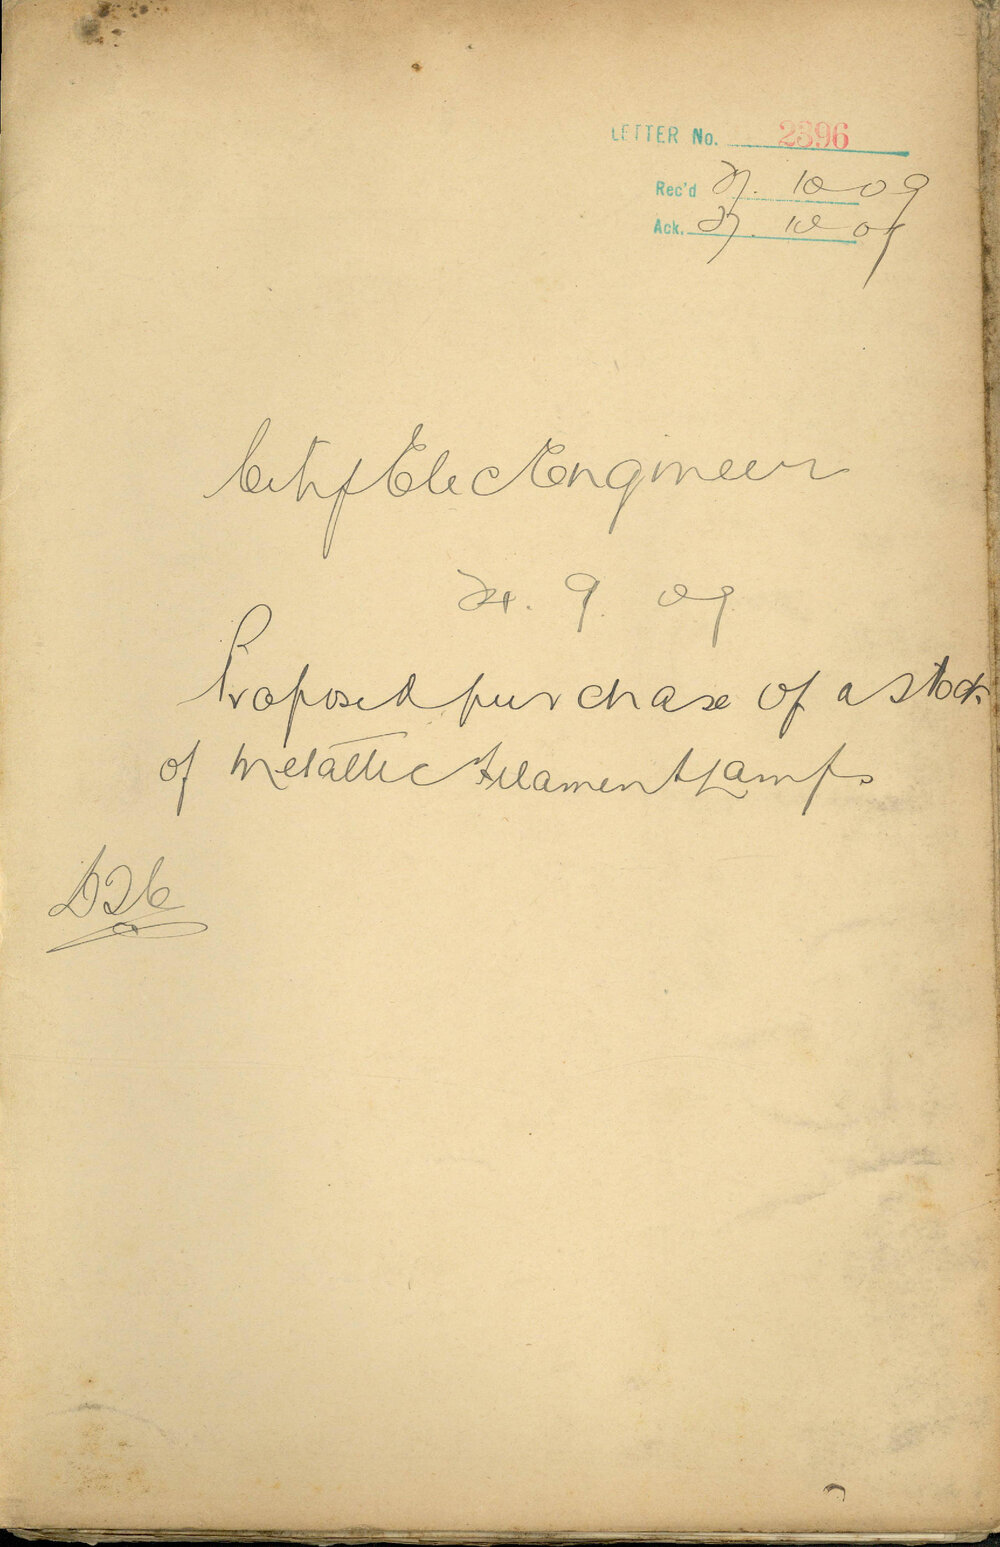 LETTER No. 2396
Rec'd 27. 10 09
Ack. 27. 10 09
City Elec Engineer
24. 9. 09
Proposed purchase of a stock
of Metallic Filament Lamps